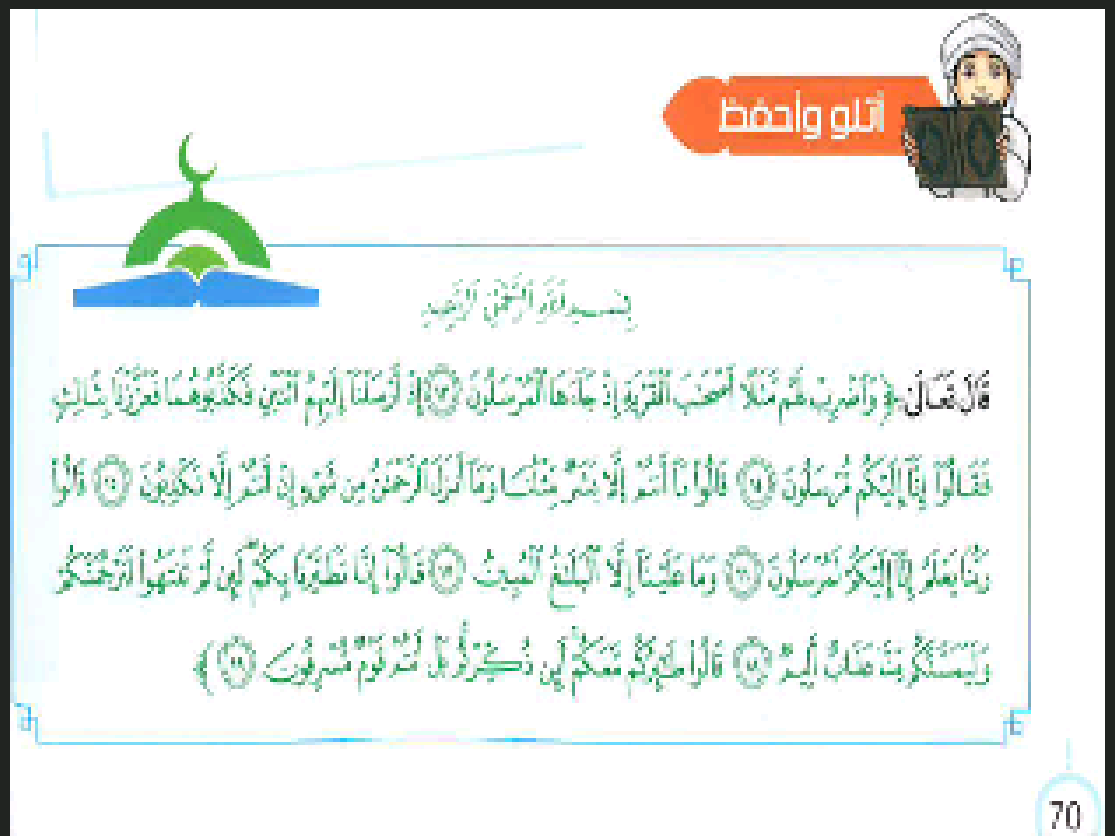 أتلو وأحفظ
بِسْمِ اللَّهِ الرَّحْمَٰنِ الرَّحِيمِ
قَالَ تَعَالَى: ﴿ وَاضْرِبْ لَهُم مَّثَلًا أَصْحَابَ الْقَرْيَةِ إِذْ جَاءَهَا الْمُرْسَلُونَ ١٣ إِذْ أَرْسَلْنَا إِلَيْهِمُ اثْنَيْنِ فَكَذَّبُوهُمَا فَعَزَّزْنَا بِثَالِثٍ
فَقَالُوا إِنَّا إِلَيْكُم مُّرْسَلُونَ ١٤ قَالُوا مَا أَنتُمْ إِلَّا بَشَرٌ مِّثْلُنَا وَمَا أَنزَلَ الرَّحْمَٰنُ مِن شَيْءٍ إِنْ أَنتُمْ إِلَّا تَكْذِبُونَ ١٥ قَالُوا
رَبُّنَا يَعْلَمُ إِنَّا إِلَيْكُمْ لَمُرْسَلُونَ ١٦ وَمَا عَلَيْنَا إِلَّا الْبَلَاغُ الْمُبِينُ ١٧ قَالُوا إِنَّا تَطَيَّرْنَا بِكُمْ لَئِن لَّمْ تَنتَهُوا لَنَرْجُمَنَّكُمْ
وَلَيَمَسَّنَّكُم مِّنَّا عَذَابٌ أَلِيمٌ ١٨ قَالُوا طَائِرُكُم مَّعَكُمْ أَئِن ذُكِّرْتُم بَلْ أَنتُمْ قَوْمٌ مُّسْرِفُونَ ١٩ ﴾
70